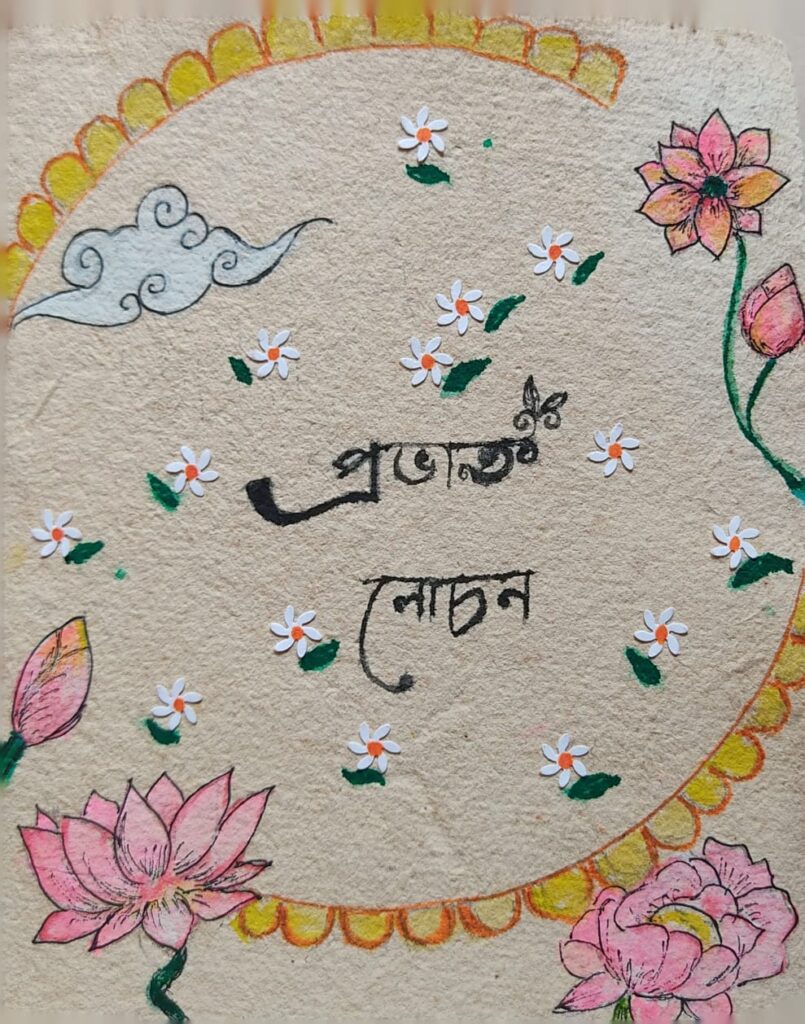 প্রভাত
লোচন